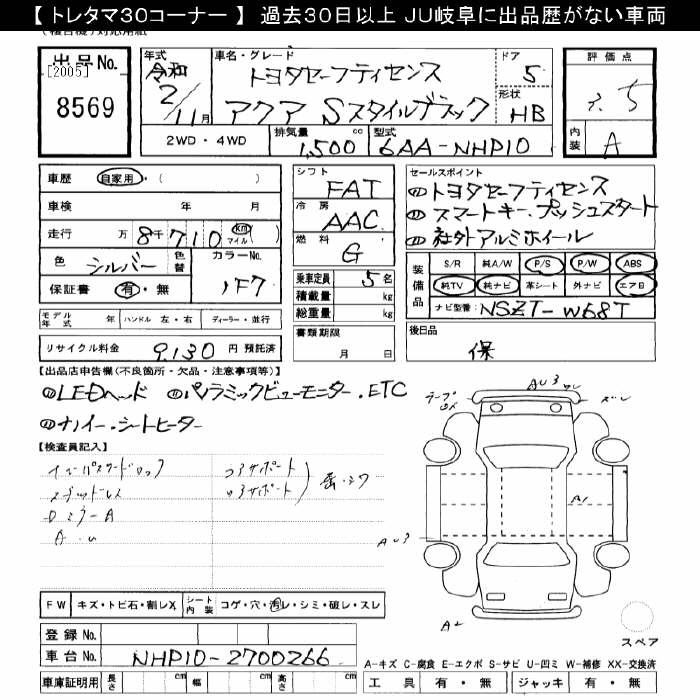 【 トレタマ30コーナー 】 過去30日以上 JU岐阜に出品歴がない車両
出品No.
[2005]
8569
年式
令和
2/11月
車名・グレード
トヨタセーフティセンス
アクア Sスタイルブラック
ドア
5
形状
HB
評価点
内装
A
2WD・4WD
排気量
1,500 cc
型式
6AA-NHP10
車歴 自家用・( )
車検 年 月
走行 万 8千710 km マイル
色 シルバー 色替 カラーNo. 1F7
保証書 有・無
モデル年式 年 ハンドル 左・右 ディーラー・並行
リサイクル料金 9,130 円 預託済
シフト FAT
冷房 AAC
燃料 G
乗車定員 5名
積載量 kg
総重量 kg
書類期限
月 日
セールスポイント
トヨタセーフティセンス
スマートキー.プッシュスタート
社外アルミホイール
装備品
S/R 純A/W P/S P/W ABS
純TV 純ナビ 革シート 外ナビ エアB
ナビ型番: NSZT-W68T
後日品
保
【出品店申告欄(不良箇所・欠品・注意事項等)】
LEDヘッド パノラミックビューモニター.ETC
ナノイー.シートヒーター
【検査員記入】
コアサポート
Dミラー A
FW キズ・トビ石・割レX シート内装 コゲ・穴・汚レ・シミ・破レ・スレ
登録No.
車台No. NHP10-2700266
車庫証明用 長さ cm 幅 cm 高さ cm
AU3
A1
AU3
A2
スペア
A-キズ C-腐食 E-エクボ S-サビ U-凹ミ W-補修 XX-交換済
工具 有・無 ジャッキ 有・無